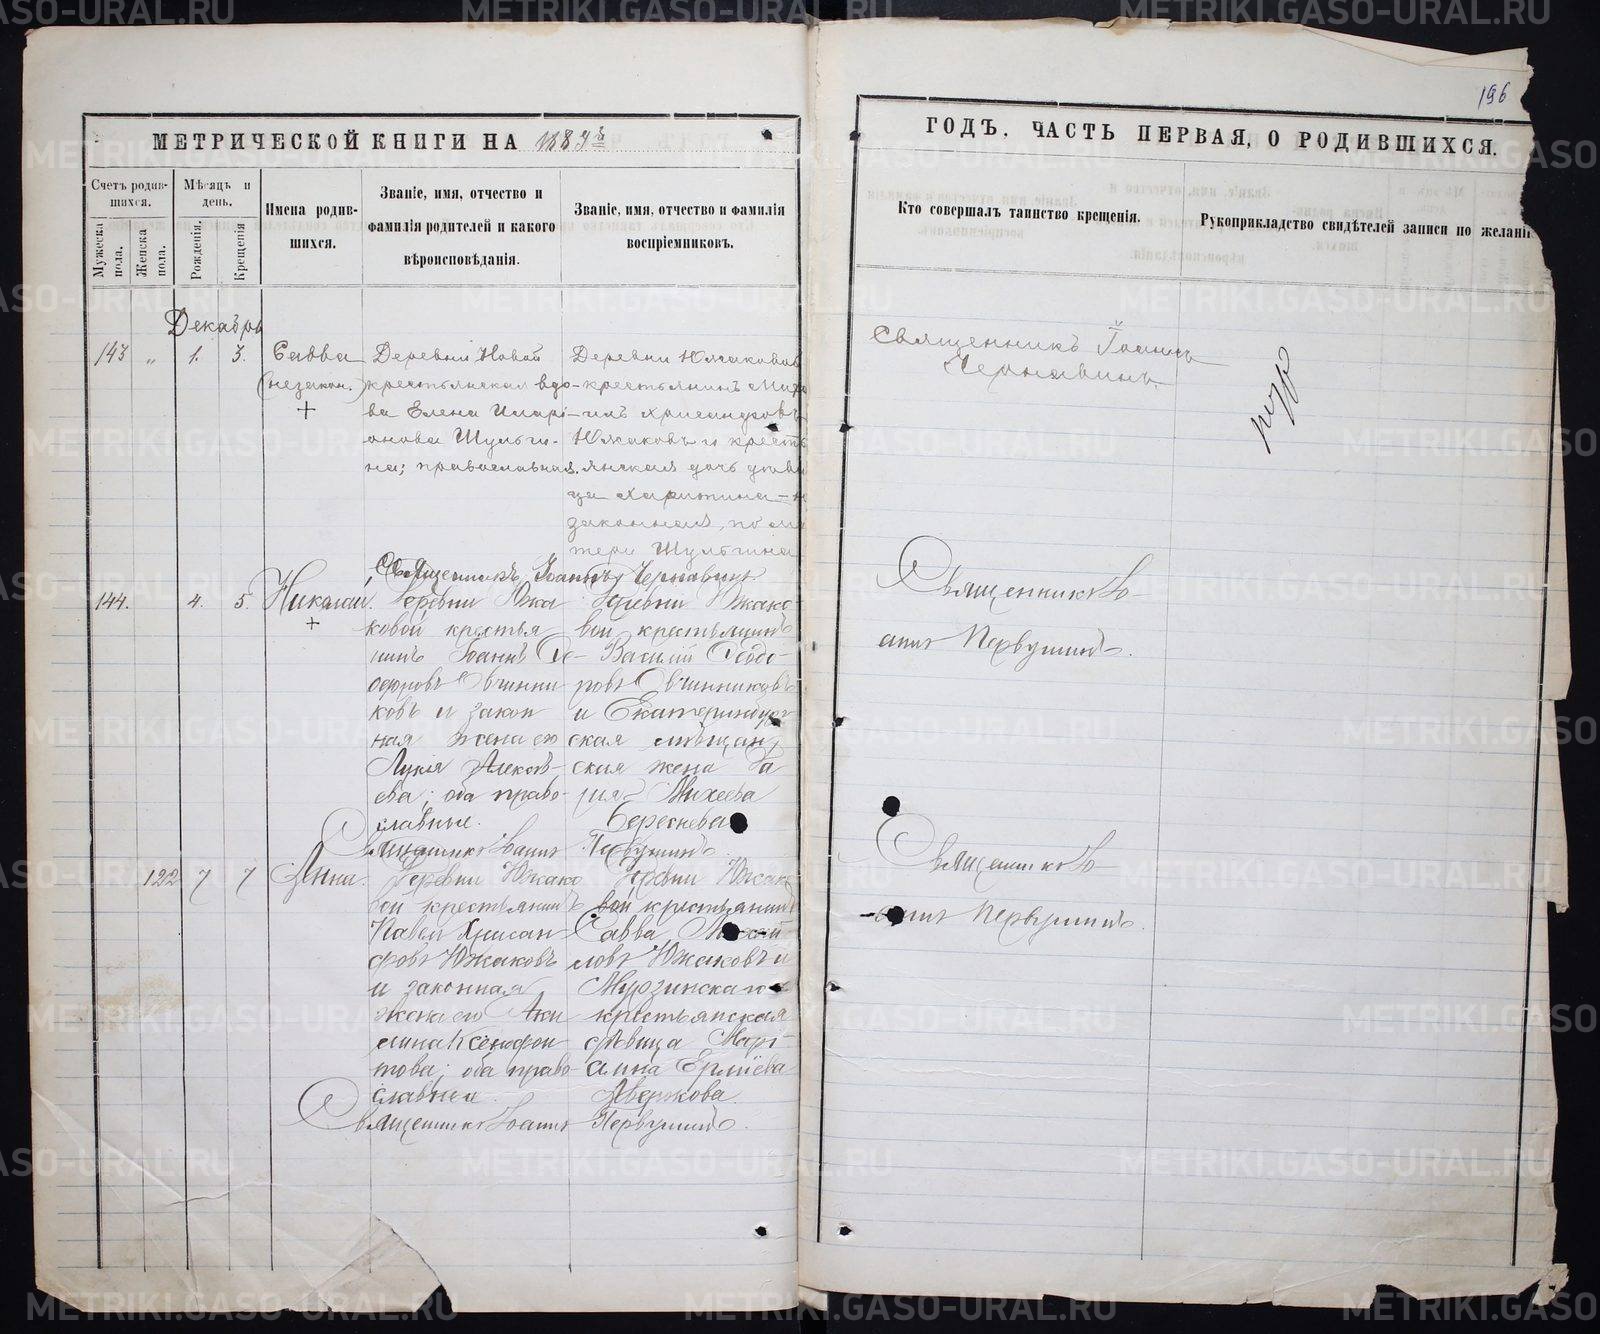 196
МЕТРИЧЕСКОЙ КНИГИ НА 1887й
ГОДЪ, ЧАСТЬ ПЕРВАЯ, О РОДИВШИХСЯ.
Счетъ родив-
шихся.
Мужеска
пола.
Женска
пола.
Мѣсяцъ и
день.
Рожденія.
Крещенія
Имена родив-
шихся.
Званіе, имя, отчество и
фамилія родителей и какого
вѣроисповѣданія.
Званіе, имя, отчество и фамилія
воспріемниковъ.
Кто совершалъ таинство крещенія.
Рукоприкладство свидѣтелей записи по желанію
Декабрь
143 „ 1. 3.
Савва
(незакон.)
+
Деревни Новой
крестьянская вдо-
ва Елена Илари-
онова Шульги-
на; православная.
Деревни Южаковой
крестьянинъ
Хрисанфовъ
Южаковъ и кресть
янская дочь дѣви
ца Харитина
законная, по ма
тери Шульгина
Священникъ Іоаннъ
Чернавинъ.
Священникъ Іоаннъ Чернавинъ
144. 4. 5.
Николай.
+
Деревни Южа
ковой крестья
нинъ Іоаннъ Ѳе-
одоровъ Овчинни
ковъ и закон
ная жена его
Лукія Алексѣ-
ева; оба право-
славные.
Деревни Южако
вой крестьянинъ
Василій Ѳеодо-
ровъ Овчинниковъ
и Екатеринбург
ская мѣщан
ская жена
Михеева
Береснева
Священникъ Іо-
аннъ Первушинъ.
Священникъ Іоаннъ Первушинъ.
122 7 7
Анна.
Деревни Южако
вой крестьянинъ
Павелъ Хрисан
фовъ Южаковъ
и законная
жена его Аки
лина Ксенофон
това; оба право
славные.
Деревни Южако
вой крестьянинъ
Савва
ловъ Южаковъ и
Мурзинская
крестьянская
дѣвица Марі
амна Ермиева
Аверкова.
Священникъ Іо
аннъ Первушинъ.
Священникъ Іоаннъ Первушинъ.
METRIKI.GASO-URAL.RU